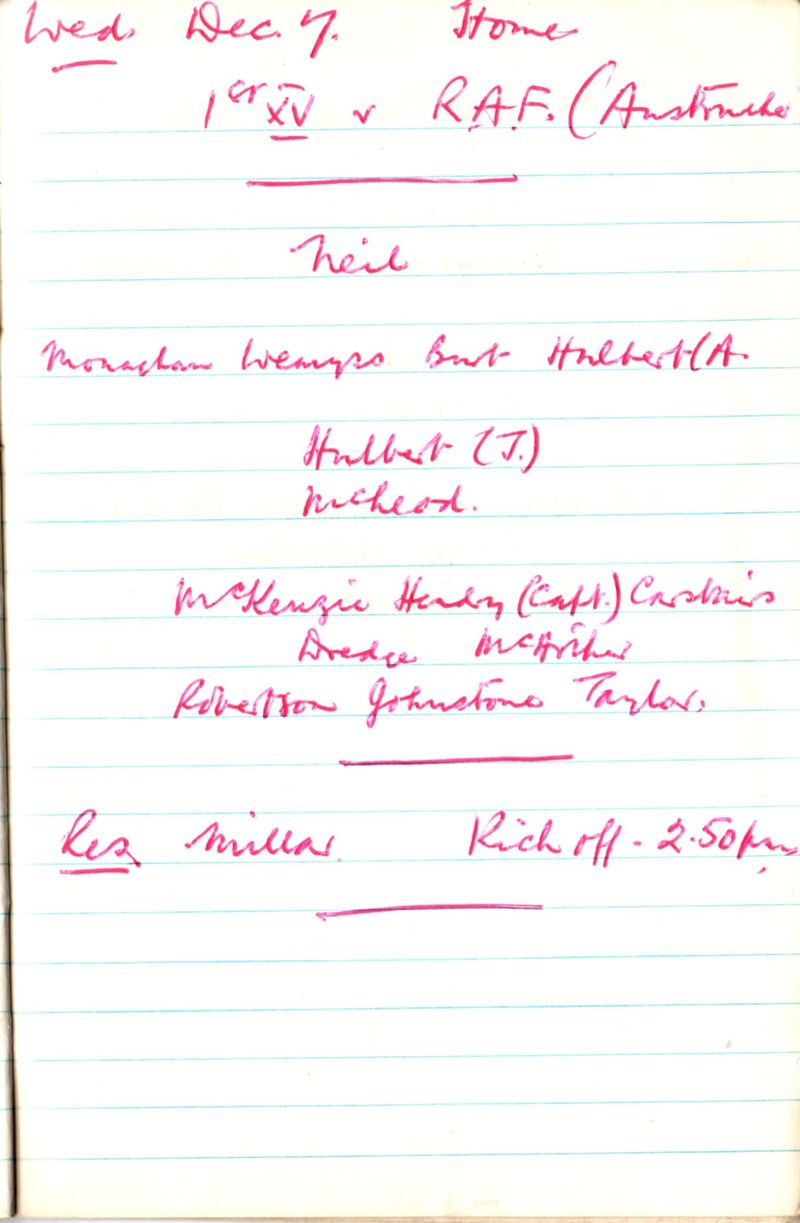 Wed. Dec. 7. Home
1st XV v R.A.F. (Anstruther
Neil
Monaghan Wemyss Burt Hulbert (A.
Hulbert (J.)
McLeod.
McKenzie Hendry (Capt.) Carstairs
Dredge McArthur
Robertson Johnstone Taylor.
Res. Millar. Kick off - 2.50pm.